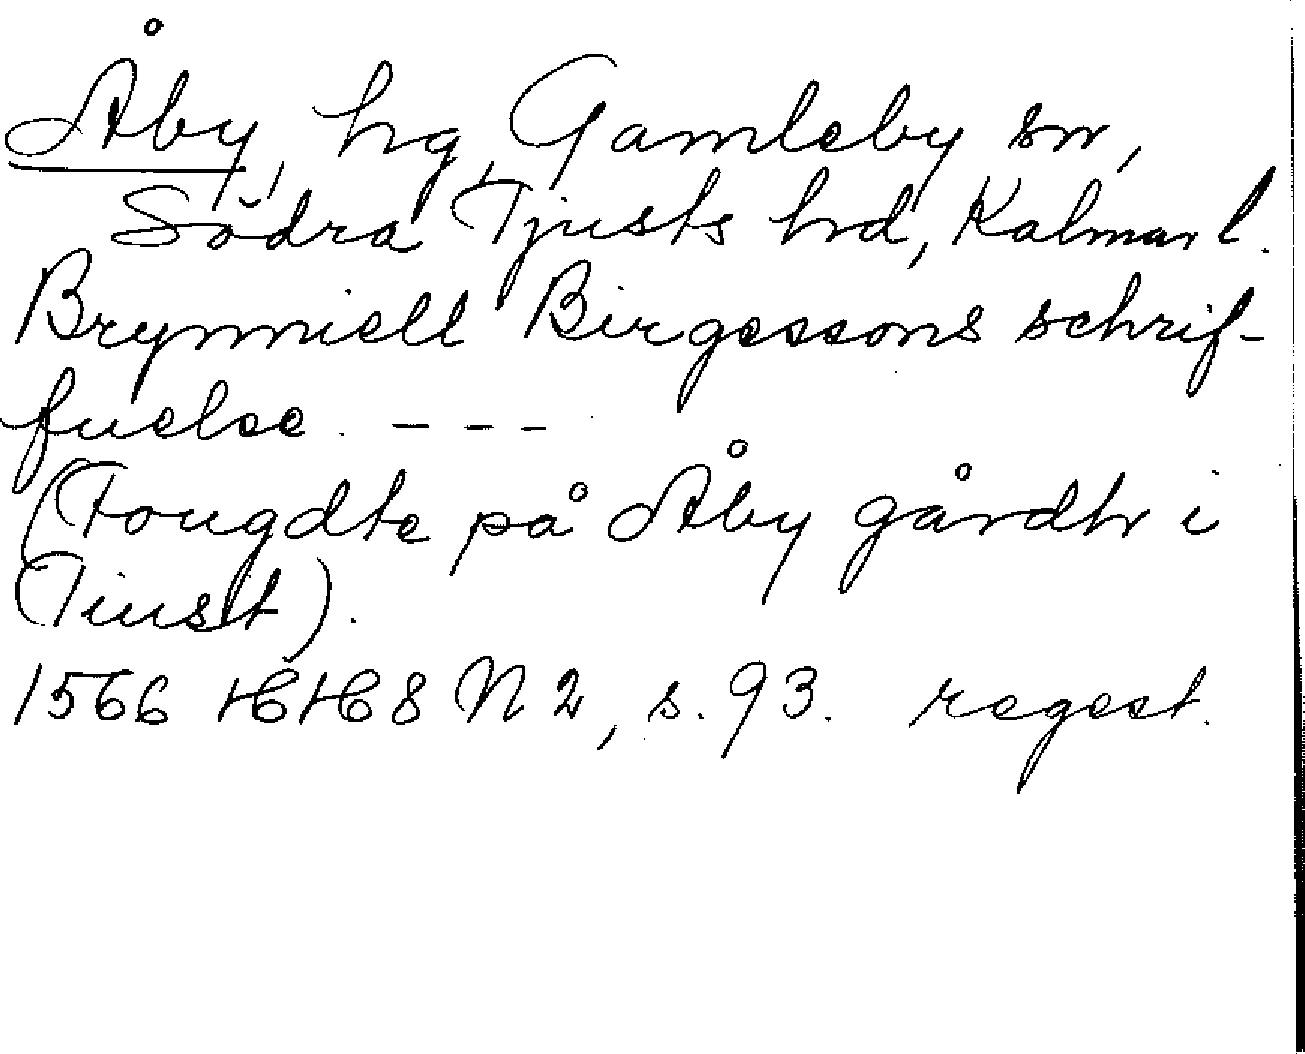 Åby, hg, Gamleby sn,
Södra Tjusts hd, Kalmar l.
Brynniell Birgessons schrif-
fuelse. - - -
(Fougdte på Åby gårdh i
Tiust).
1566 HH 8 N 2, s. 93. regest.